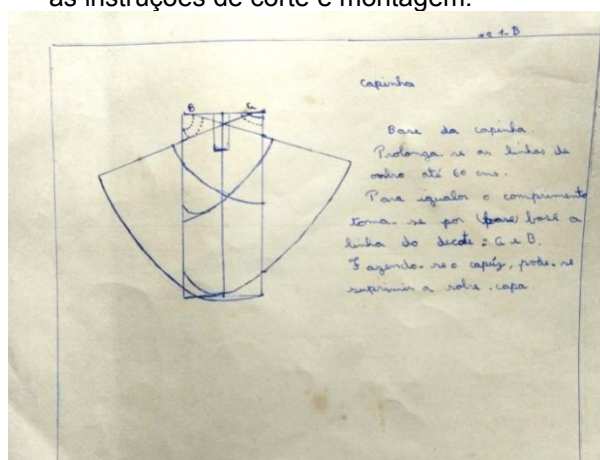 as instruções de corte e montagem.
nº 1-B
Capinha
B
G
Base da capinha.
Prolonga-se as linhas do
ombro até 60 cms.
Para igualar o comprimento
toma-se por (base) base a
linha do decote: G e B.
Fazendo-se o capúz, pode-se
suprimir a sobre-capa